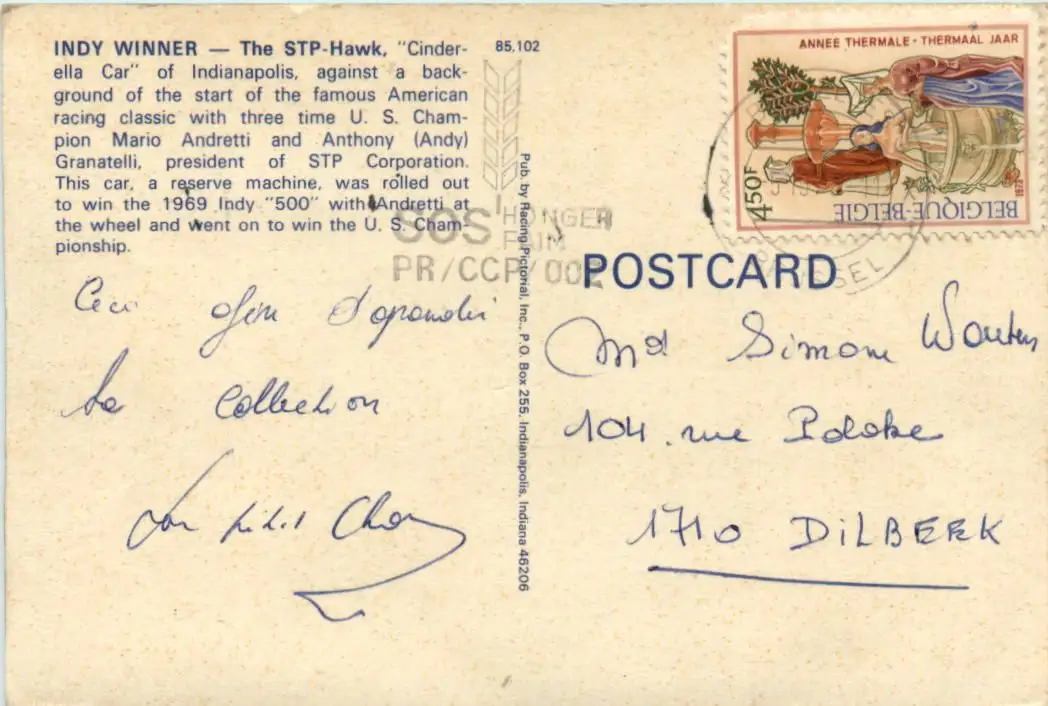 INDY WINNER — The STP-Hawk, "Cinder-
ella Car" of Indianapolis, against a back-
ground of the start of the famous American
racing classic with three time U. S. Cham-
pion Mario Andretti and Anthony (Andy)
Granatelli, president of STP Corporation.
This car, a reserve machine, was rolled out
to win the 1969 Indy "500" with Andretti at
the wheel and went on to win the U. S. Cham-
pionship.
85,102
ANNEE THERMALE - THERMAAL JAAR
4,50F
BELGIQUE-BELGIE
SOS HONGER
FAIM
PR/CCP/
POSTCARD
Pub. by Racing Pictorial, Inc., P.O. Box 255, Indianapolis, Indiana 46206
Ceci afin d'agrandir
ta collection
Ton petit
Simone Wouters
104. rue
1710 DILBEEK